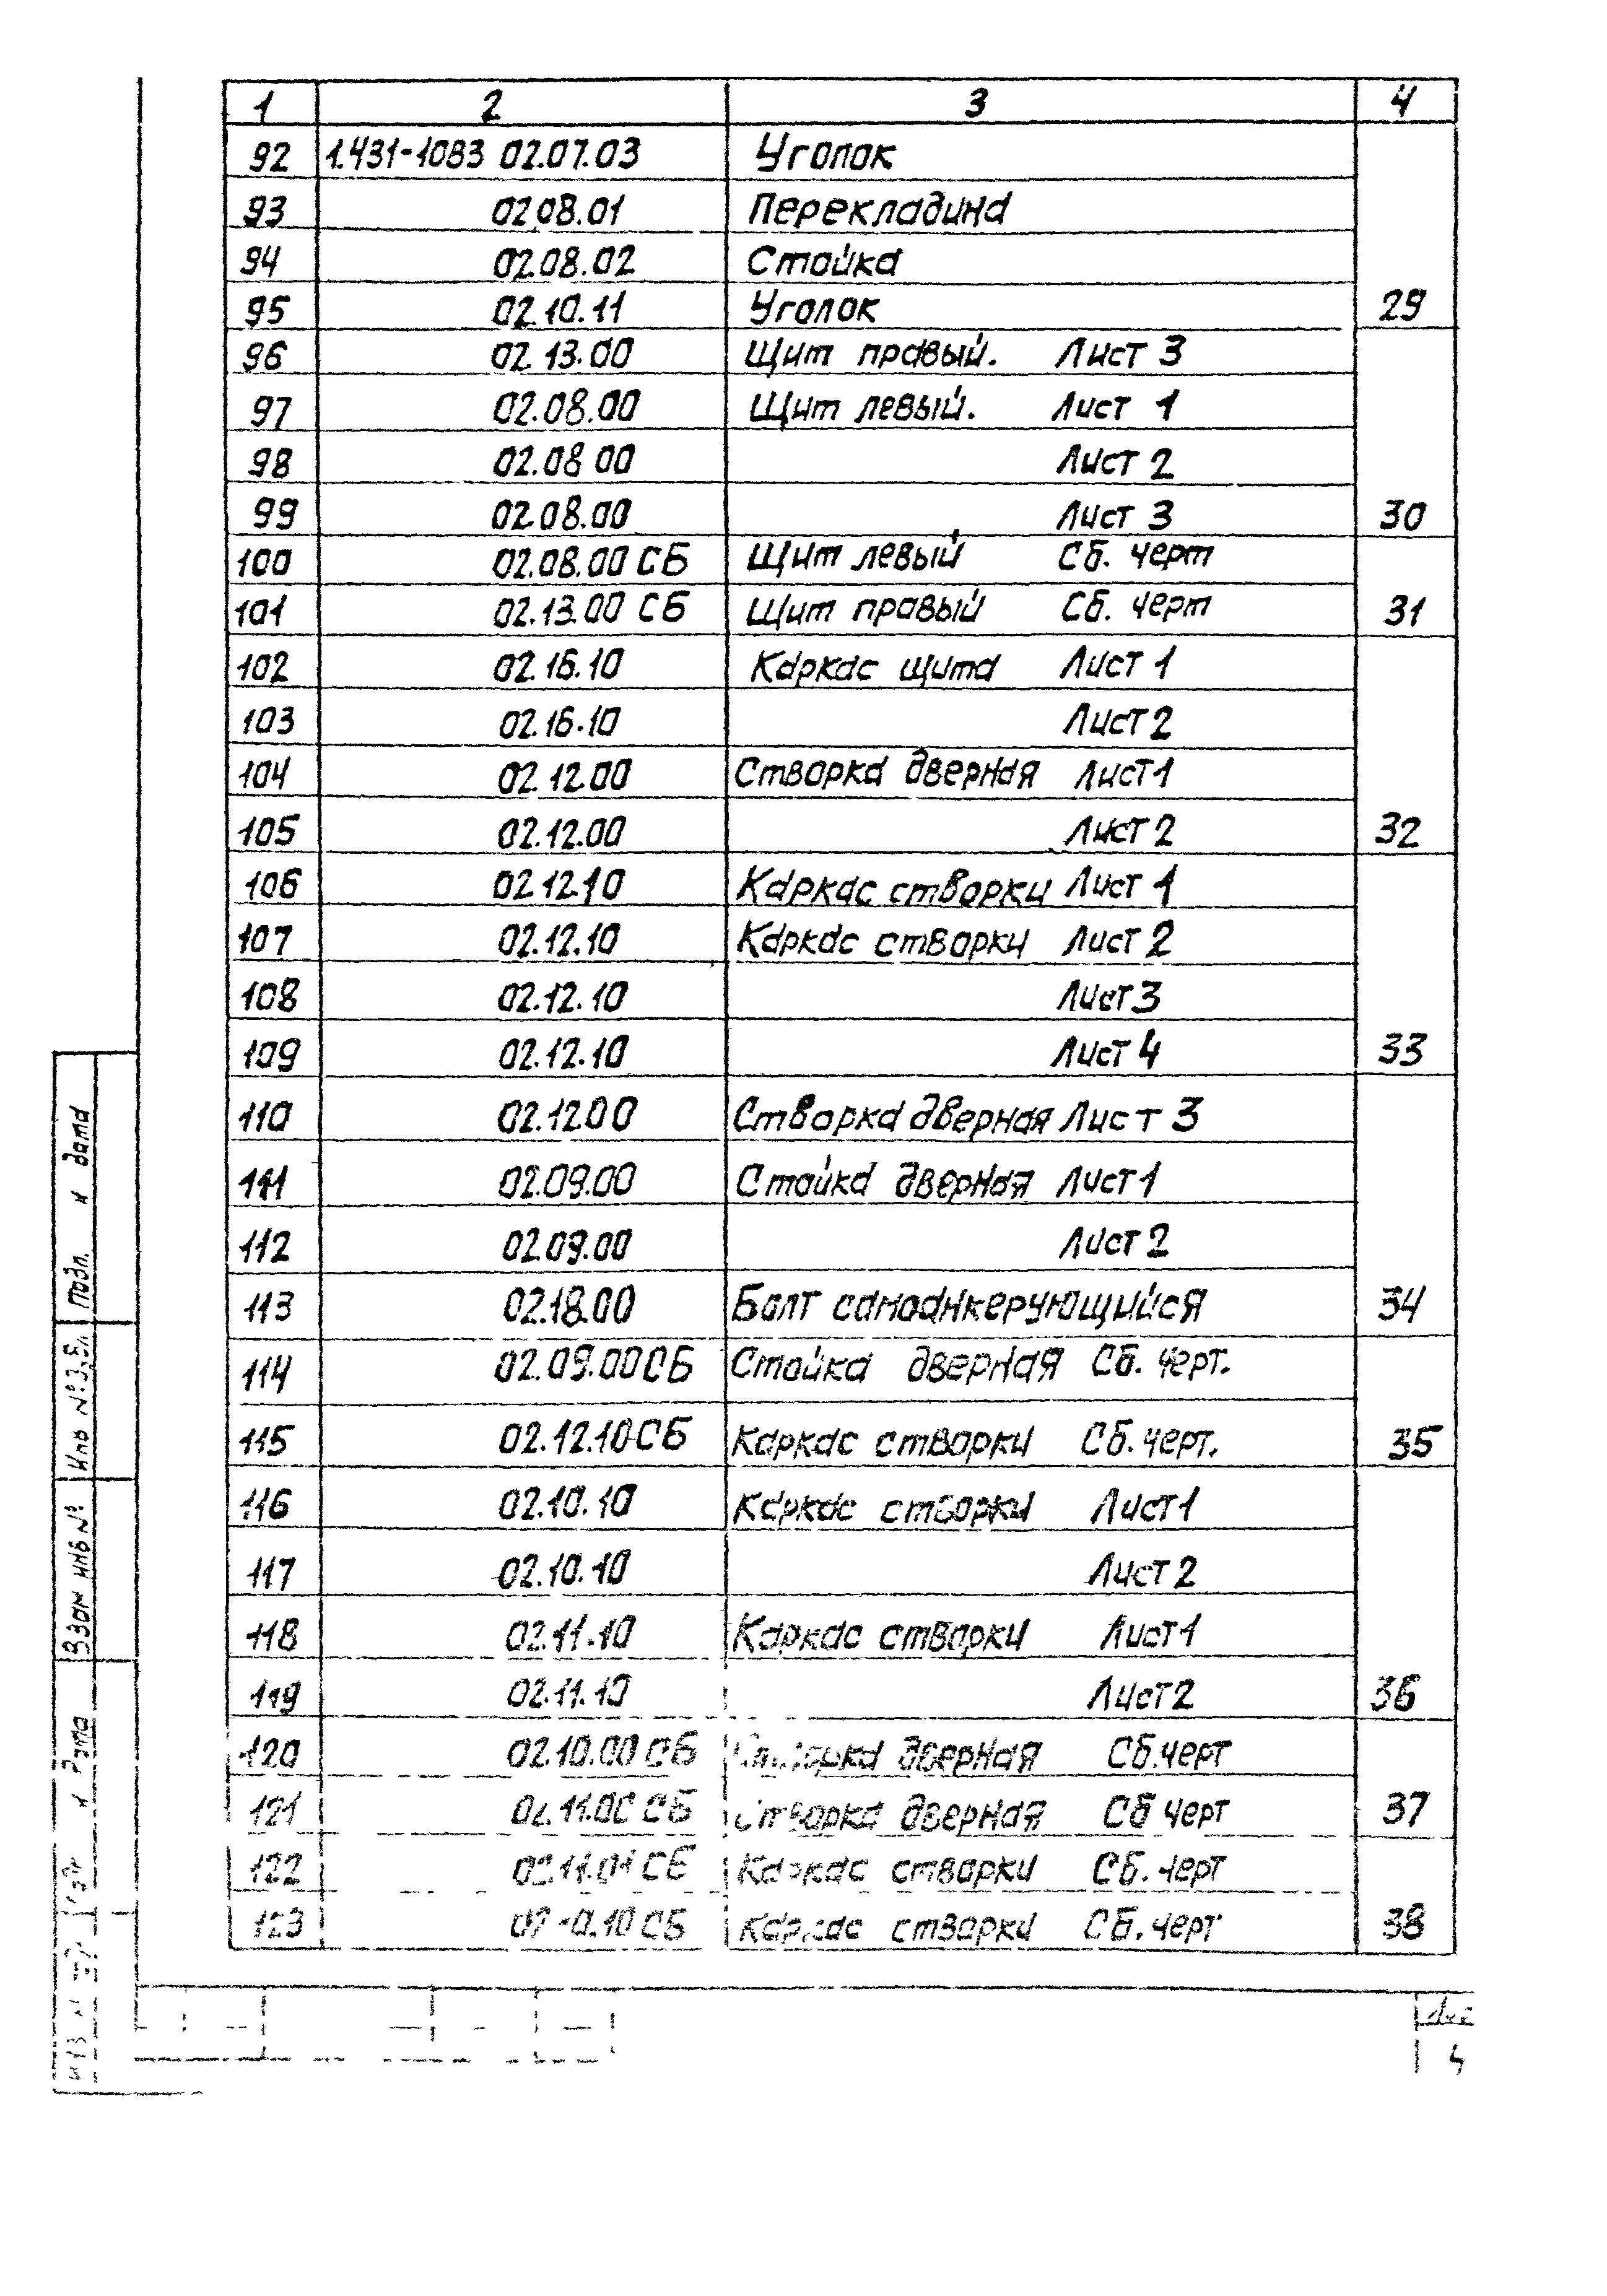 1 2 3 4
92 1.431-1083 02.07.03 Уголок
93 02.08.01 Перекладина
94 02.08.02 Стойка
95 02.10.11 Уголок 29
96 02.13.00 Щит правый. Лист 3
97 02.08.00 Щит левый. Лист 1
98 02.08 00 Лист 2
99 02.08.00 Лист 3 30
100 02.08.00 СБ Щит левый Сб. черт
101 02.13.00 СБ Щит правый Сб. черт 31
102 02.16.10 Каркас щита Лист 1
103 02.16.10 Лист 2
104 02.12.00 Створка дверная Лист 1
105 02.12.00 Лист 2 32
106 02.12.10 Каркас створки Лист 1
107 02.12.10 Каркас створки Лист 2
108 02.12.10 Лист 3
109 02.12.10 Лист 4 33
110 02.12.00 Створка дверная Лист 3
111 02.09.00 Стойка дверная Лист 1
112 02.09.00 Лист 2
113 02.18.00 Болт самоанкерующийся 34
114 02.09.00 СБ Стойка дверная Сб. черт.
115 02.12.10 СБ Каркас створки Сб. черт. 35
116 02.10.10 Каркас створки Лист 1
117 02.10.10 Лист 2
118 02.11.10 Каркас створки Лист 1
119 02.11.10 Лист 2 36
120 02.10.00 СБ Створка дверная Сб. черт
121 02.11.00 СБ Створка дверная Сб черт 37
122 СБ Каркас створки Сб. черт
123 СБ Каркас створки Сб. черт 38
Подл. и дата
Взам инв №